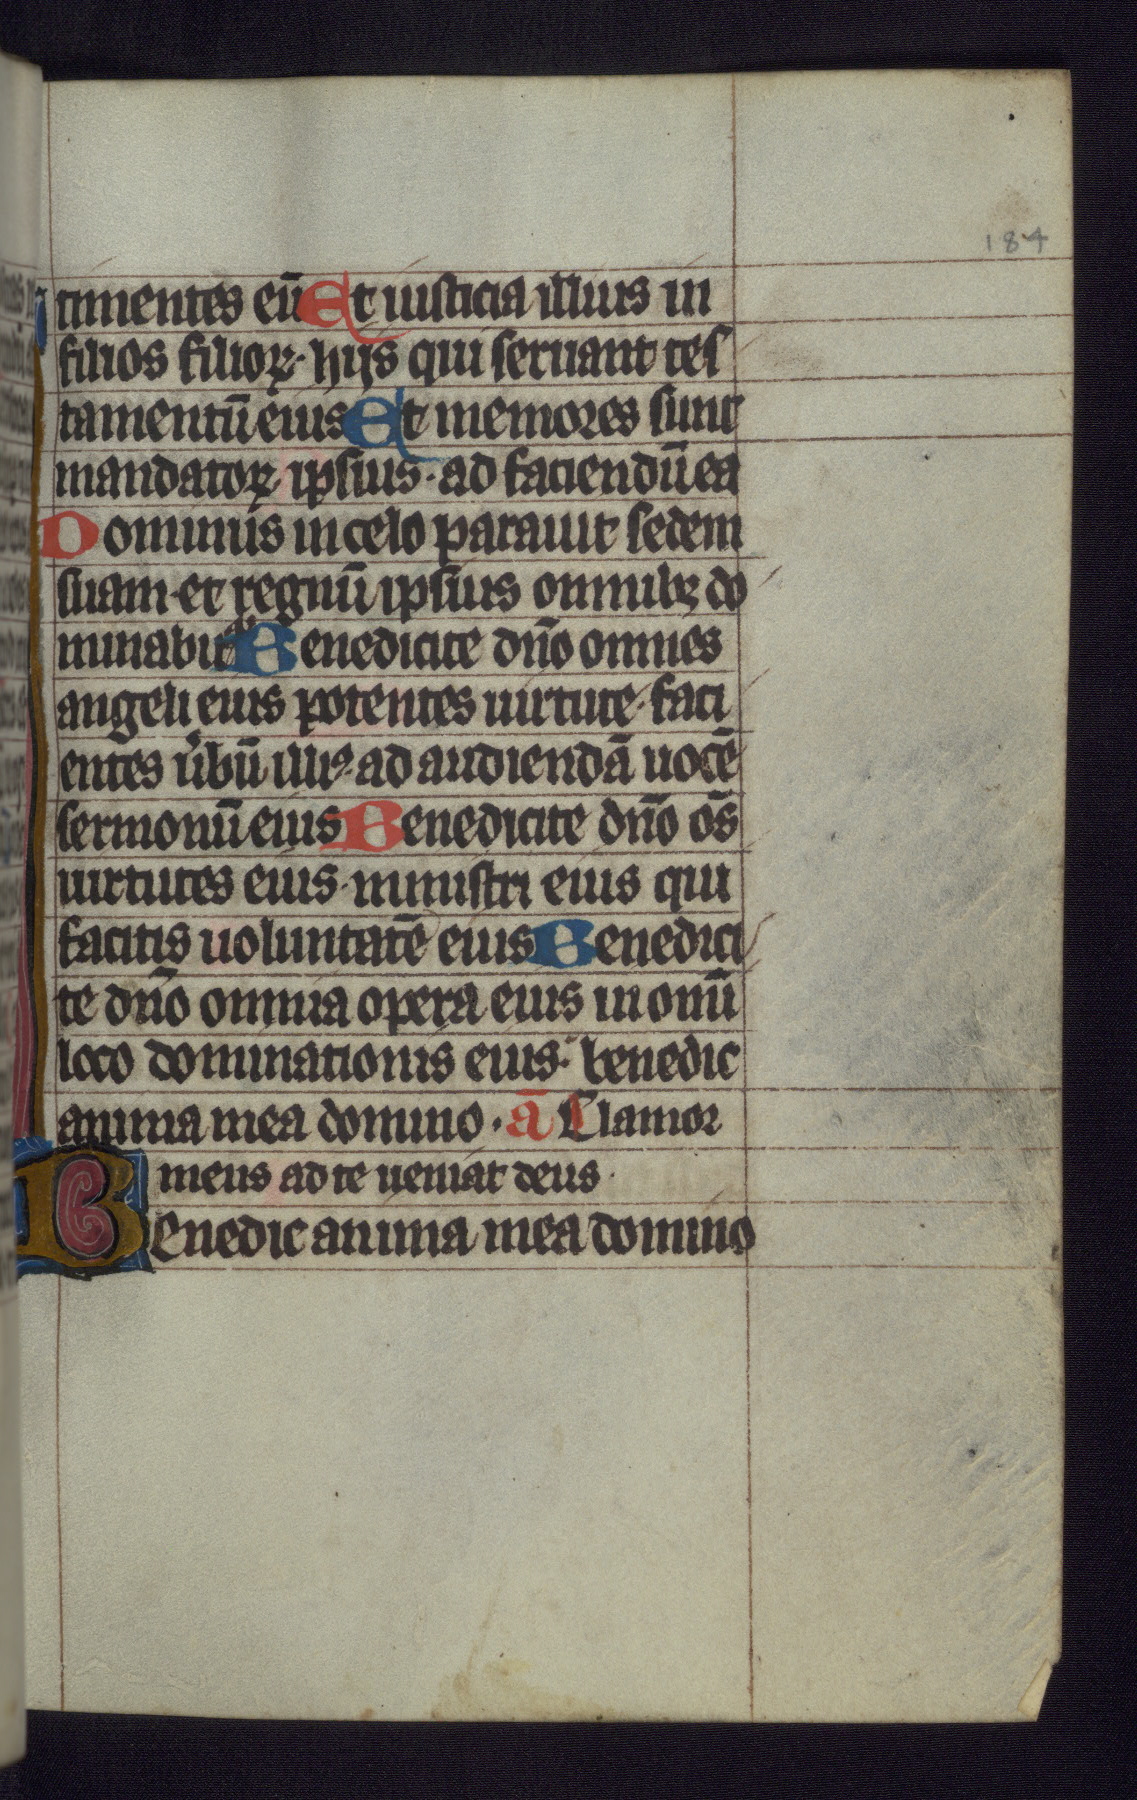 184
timentes eū Et iusticia illius in
filios filioꝝ· hijs qui seruant tes
tamentū eius Et memores sunt
mandatoꝝ ipsius· ad faciendū ea
Dominus in celo parauit sedem
suam· et regnū ipsius omnibꝫ do
minabitur Benedicite dn̄o omnes
angeli eius potentes uirtute· faci
entes ubū illiꝰ· ad audiendā uocē
sermonū eius Benedicite dn̄o os̄
uirtutes eius· ministri eius qui
facitis uoluntatē eius Benedici
te dn̄o omnia opera eius in om̄i
loco dominationis eius· benedic
anima mea domino· ā Clamor
meus ad te ueniat deus·
Benedic anima mea domino